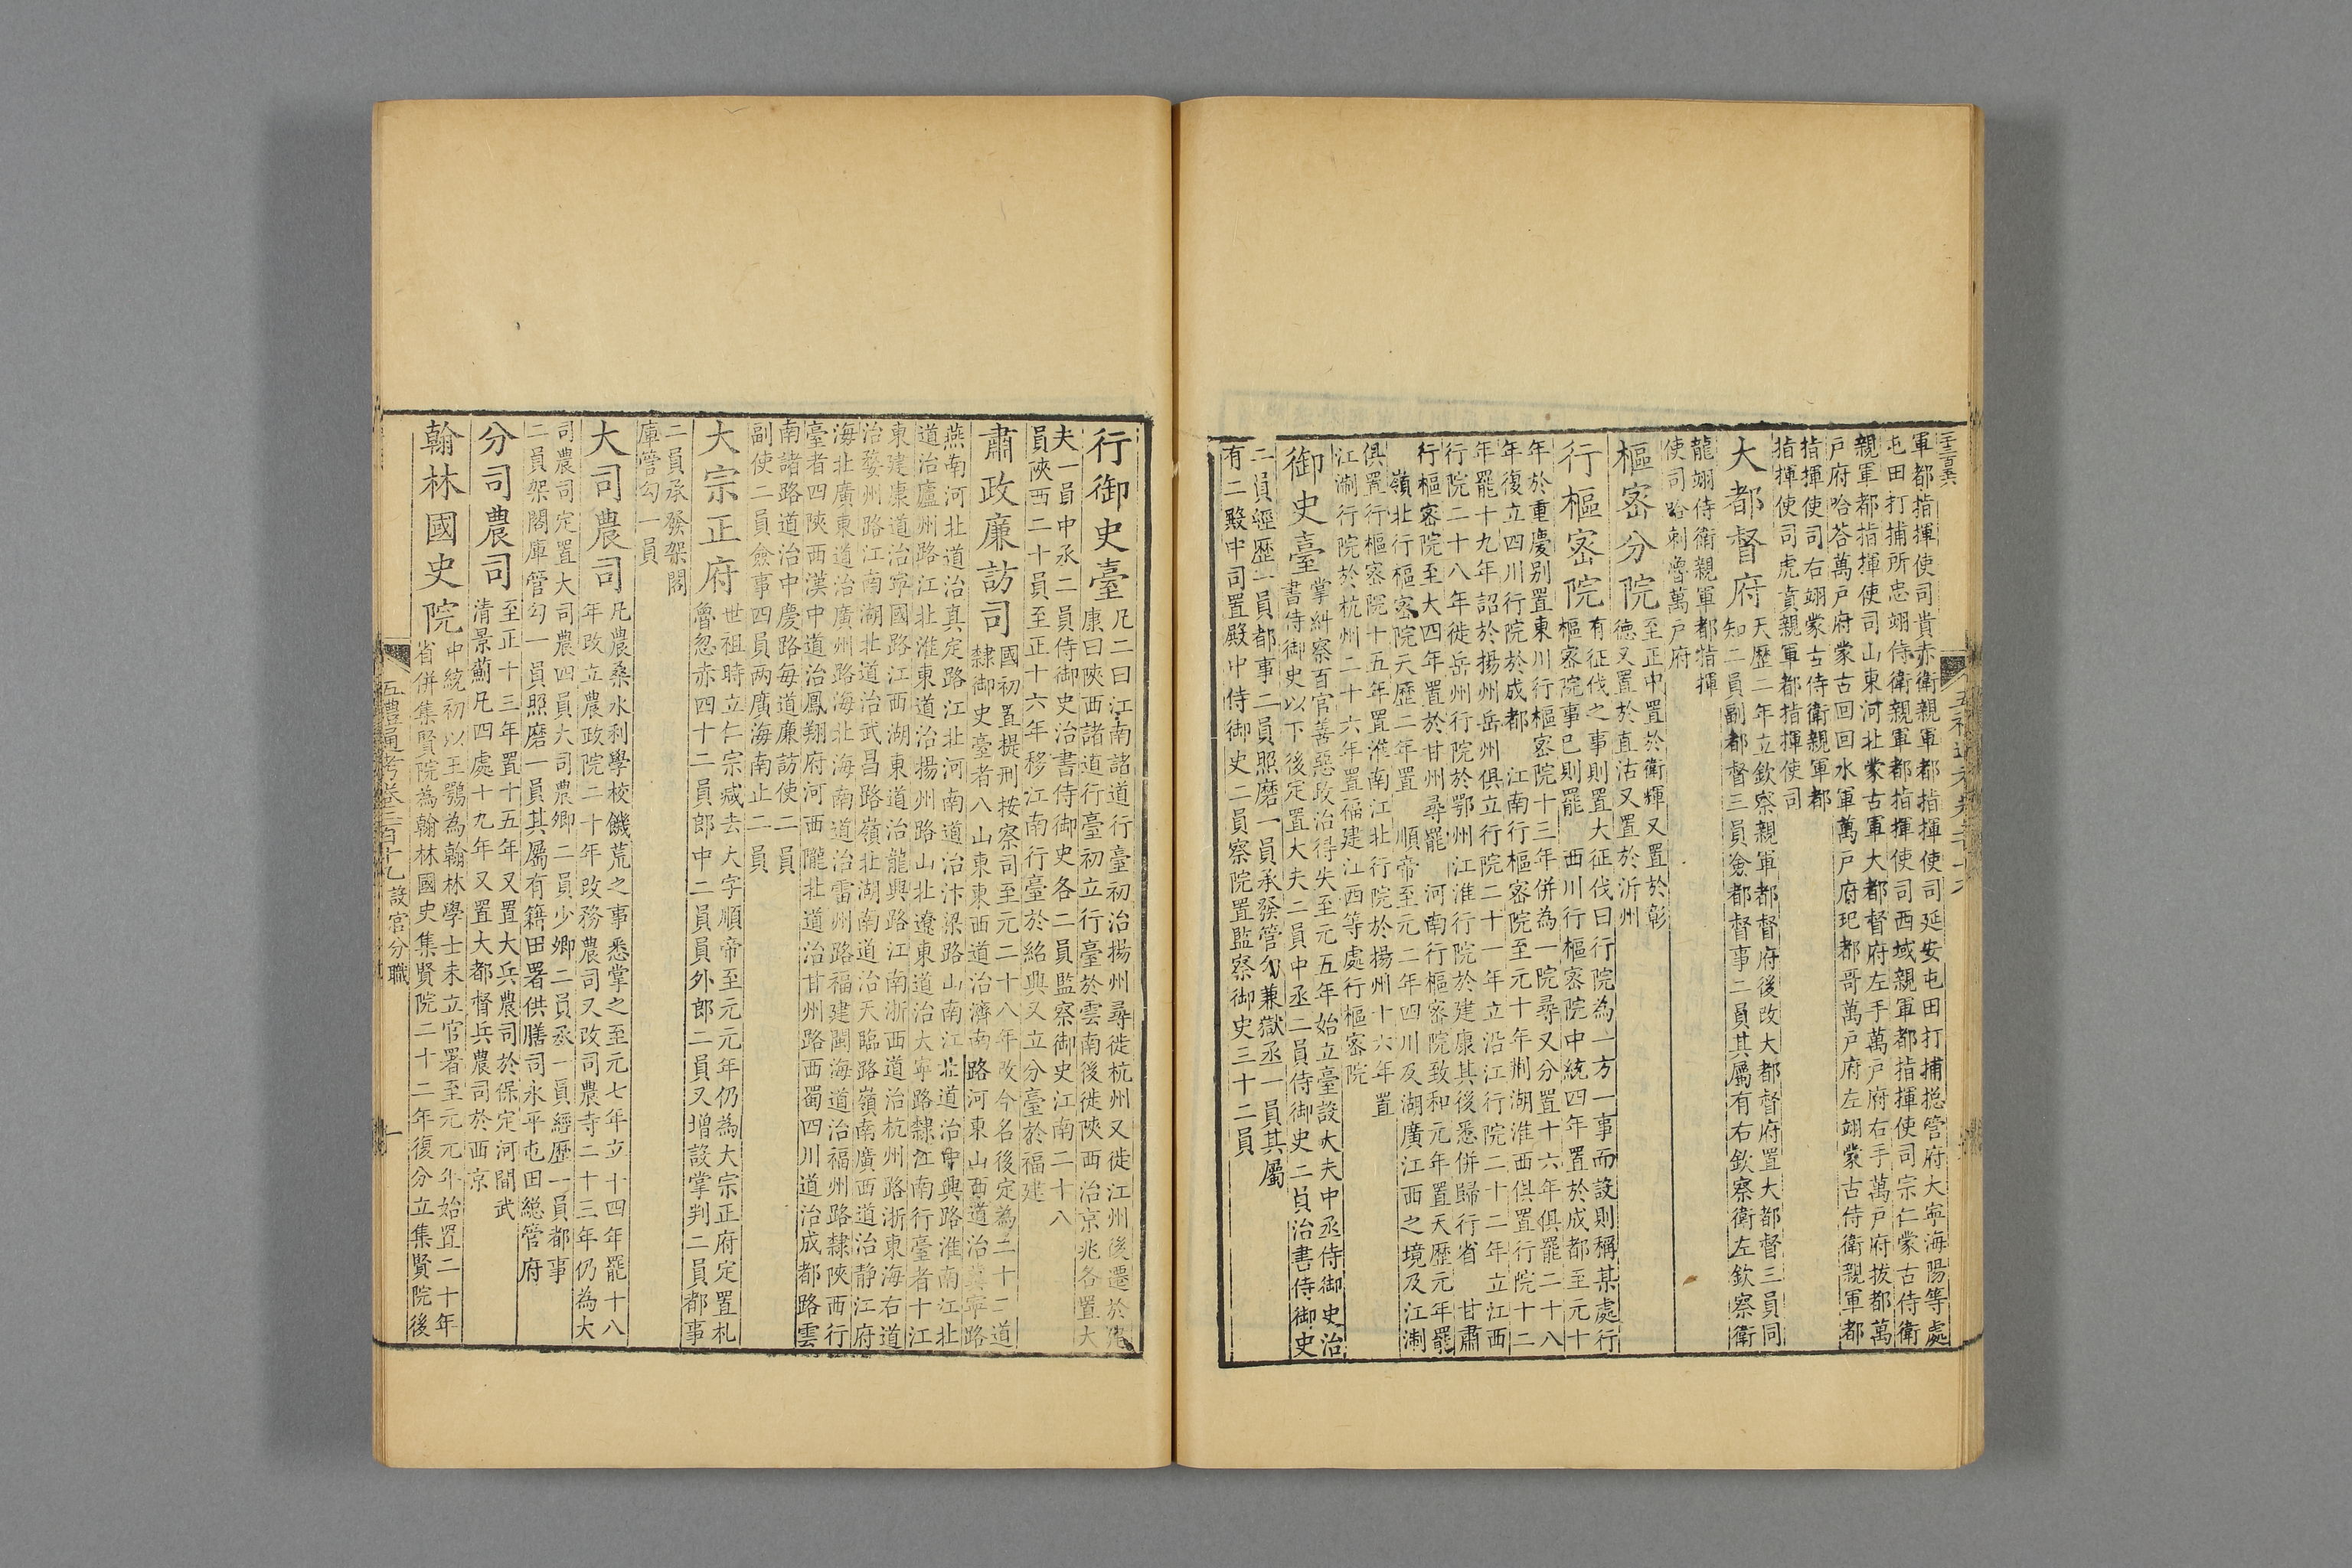 軍都指揮使司貴赤衛親軍都指揮使司延安屯田打捕總管府大寧海陽等處
屯田打捕所忠翊侍衛親軍都指揮使司西域親軍都指揮使司宗仁蒙古侍衛
親軍都指揮使司山東河北蒙古軍大都督府左手萬戶府右手萬戶府拔都萬
戶府哈荅萬戶府蒙古回回水軍萬戶府玘都哥萬戶府左翊蒙古侍衛親軍都
指揮使司右翊蒙古侍衛親軍都
指揮使司虎賁親軍都指揮使司
大都督府
天歷二年立欽察親軍都督府後改大都督府置大都督三員同
知二員副都督三員僉都督事二員其屬有右欽察衛左欽察衛
龍翊侍衛親軍都指揮
使司哈剌魯萬戶府
樞密分院
至正中置於衛輝又置於彰
德又置於直沽又置於沂州
行樞密院
有征伐之事則置大征伐曰行院為一方一事而設則稱某處行
樞密院事已則罷 西川行樞密院中統四年置於成都至元十
年於重慶别置東川行樞密院十三年併為一院尋又分置十六年俱罷二十八
年復立四川行院於成都 江南行樞密院至元十年荆湖淮西俱置行院十二
年罷十九年詔於揚州岳州俱立行院二十一年立沿江行院二十二年立江西
行院二十八年徙岳州行院於鄂州江淮行院於建康其後悉併歸行省 甘肅
行樞密院至大四年置於甘州尋罷 河南行樞密院致和元年置天歷元年罷
嶺北行樞密院天歷二年置 順帝至元二年四川及湖廣江西之境及江淛
俱置行樞密院十五年置淮南江北行院於揚州十六年置
江淛行院於杭州二十六年置福建江西等處行樞密院
御史臺
掌糾察百官善惡政治得失至元五年始立臺設大夫中丞侍御史治
書侍御史以下後定置大夫二員中丞二員侍御史二員治書侍御史
二員經歷一員都事二員照磨一員承發管勾兼獄丞一員其屬
有二殿中司置殿中侍御史二員察院置監察御史三十二員
行御史臺
凡二曰江南諸道行臺初治揚州尋徙杭州又徙江州後遷於
康曰陝西諸道行臺初立行臺於雲南後徙陝西治京兆各置大
夫一員中丞二員侍御史治書侍御史各二員監察御史江南二十八
員陝西二十員至正十六年移江南行臺於紹興又立分臺於福建
肅政廉訪司
國初置提刑按察司至元二十八年改今名後定為二十二道
隸御史臺者八山東東西道治濟南路河東山西道治冀寧路
燕南河北道治真定路江北河南道治汴梁路山南江北道治中興路淮南江北
道治廬州路江北淮東道治揚州路山北遼東道治大寧路隸江南行臺者十江
東建康道治寧國路江西湖東道治龍興路江南浙西道治杭州路浙東海右道
治婺州路江南湖北道治武昌路嶺北湖南道治天臨路嶺南廣西道治静江府
海北廣東道治廣州路海北海南道治雷州路福建閩海道治福州路隸陝西行
臺者四陝西漢中道治鳳翔府河西隴北道治甘州路西蜀四川道治成都路雲
南諸路道治中慶路每道廉訪使二員
副使二員僉事四員两廣海南止二員
大宗正府
世祖時立仁宗减去大字順帝至元元年仍為大宗正府定置札
魯忽赤四十二員郎中二員員外郎二員又增設掌判二員都事
二員承發架閣
庫管勾一員
大司農司
凡農桑水利學校饑荒之事悉掌之至元七年立十四年罷十八
年改立農政院二十年改務農司又改司農寺二十三年仍為大
司農司定置大司農四員大司農卿二員少卿二員丞一員經歷一員都事
二員架閣庫管勾一員照磨一員其屬有籍田署供膳司永平屯田總管府
分司農司
至正十三年置十五年又置大兵農司於保定河間武
清景薊凡四處十九年又置大都督兵農司於西京
翰林國史院
中統初以王鶚為翰林學士未立官署至元元年始置二十年
省併集賢院為翰林國史集賢院二十二年復分立集賢院後
五禮通考卷二百十九 設官分職 一